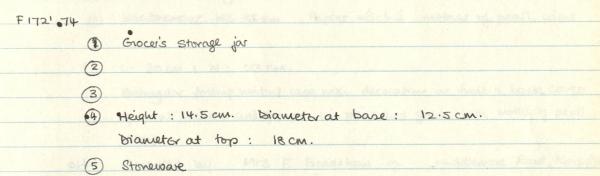 F172'.74
① Grocer's storage jar
②
③
④ Height : 14.5 cm. Diameter at base : 12.5 cm.
Diameter at top : 18 cm.
⑤ Stoneware